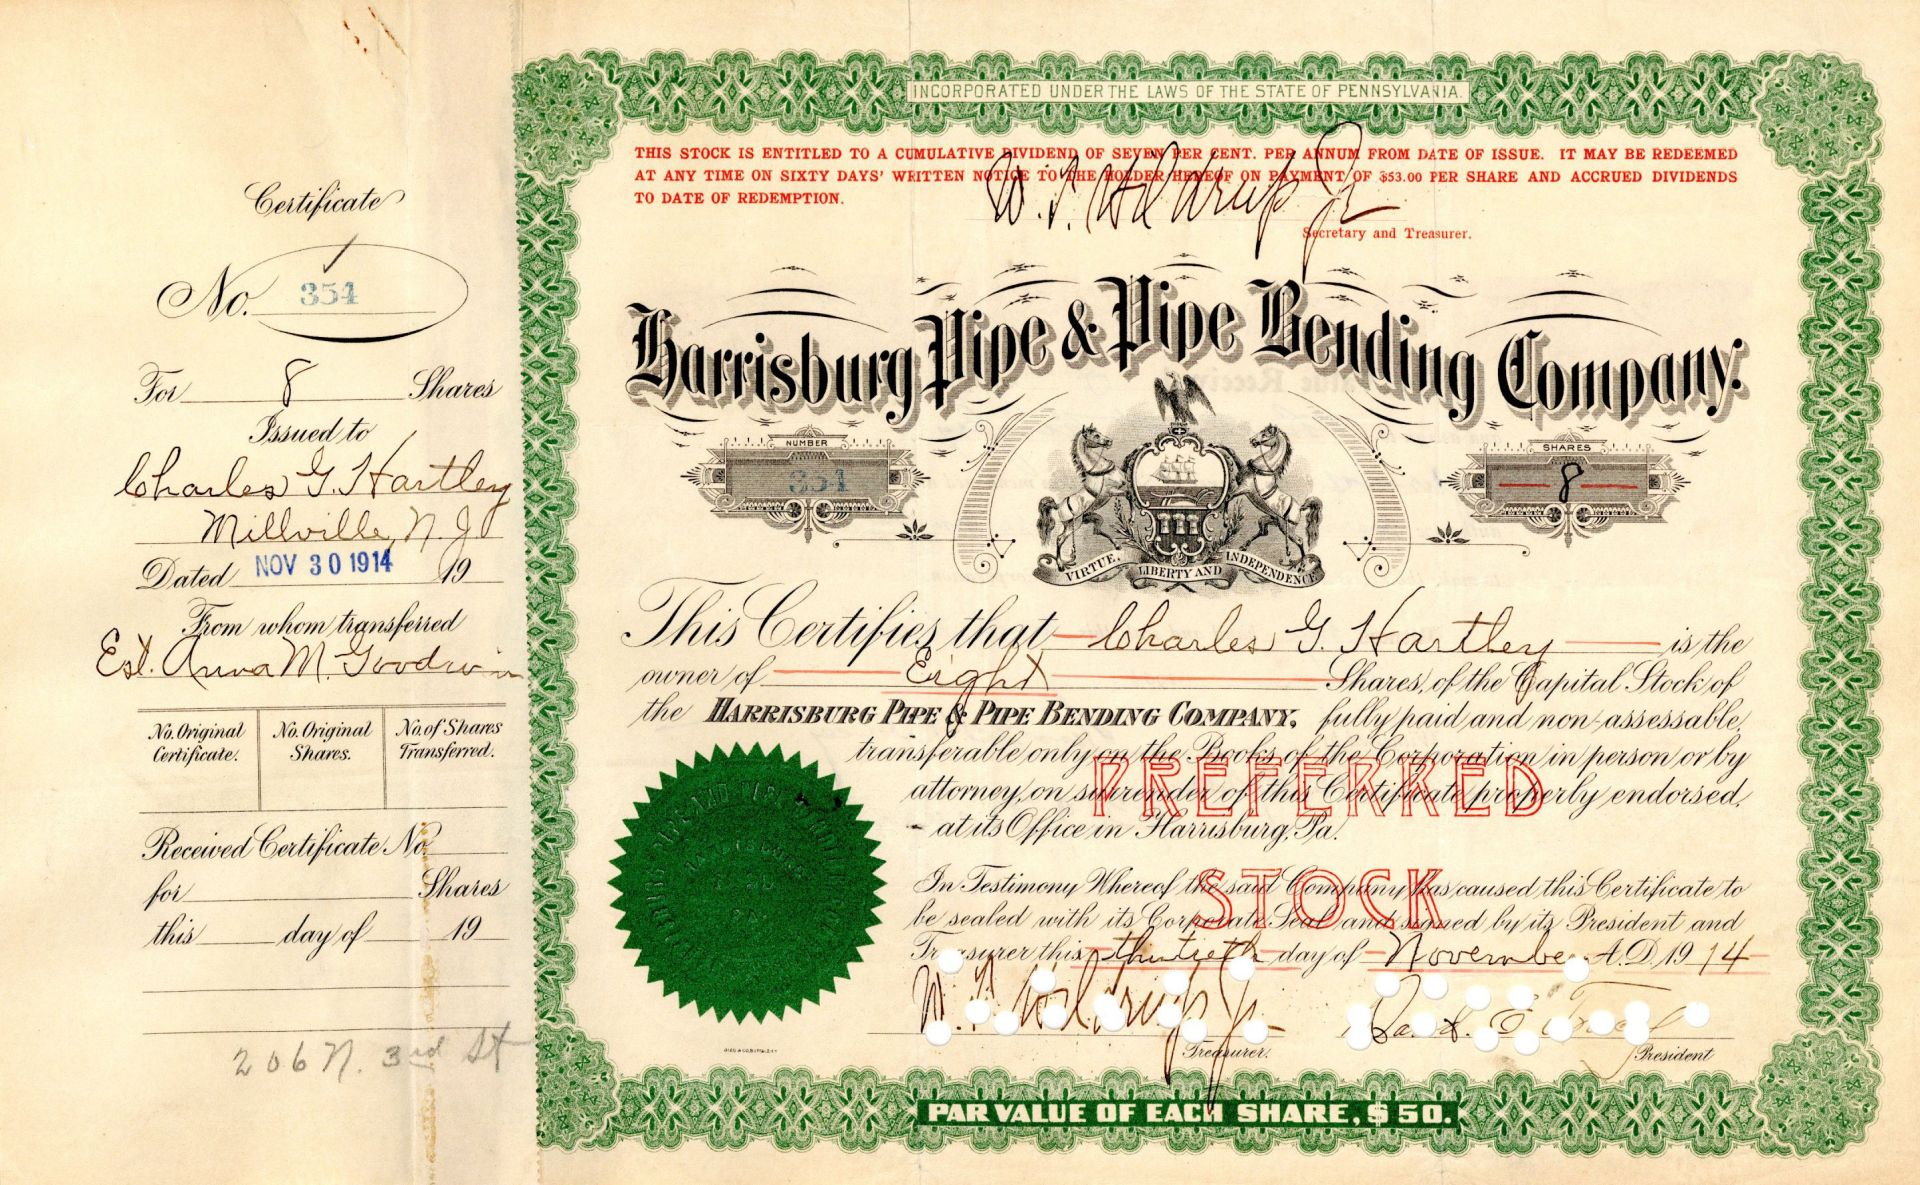 Certificate
No. 354
For 8 Shares
Issued to
Charles G. Hartley
Millville, N. J.
Dated NOV 30 1914 19
From whom transferred
Est. Anna M. Goodwin
No. Original Certificate.
No. Original Shares.
No. of Shares Transferred.
Received Certificate No.
for Shares
this day of 19
206 N. 3rd St
INCORPORATED UNDER THE LAWS OF THE STATE OF PENNSYLVANIA.
THIS STOCK IS ENTITLED TO A CUMULATIVE DIVIDEND OF SEVEN PER CENT. PER ANNUM FROM DATE OF ISSUE. IT MAY BE REDEEMED
AT ANY TIME ON SIXTY DAYS' WRITTEN NOTICE TO THE HOLDER HEREOF ON PAYMENT OF $53.00 PER SHARE AND ACCRUED DIVIDENDS
TO DATE OF REDEMPTION.
W. T. Hildrup Jr
Secretary and Treasurer.
Harrisburg Pipe & Pipe Bending Company.
NUMBER
354
SHARES
8
VIRTUE, LIBERTY AND INDEPENDENCE
This Certifies that Charles G. Hartley is the
owner of Eight Shares, of the Capital Stock of
the HARRISBURG PIPE & PIPE BENDING COMPANY, fully paid and non-assessable,
transferable only on the Books of the Corporation in person or by
attorney, on surrender of this Certificate properly endorsed,
at its Office in Harrisburg, Pa.
PREFERRED
STOCK
In Testimony Whereof the said Company has caused this Certificate to
be sealed with its Corporate Seal and signed by its President and
Treasurer this thirtieth day of November A.D. 1914
W. T. Hildrup Jr.
Treasurer.
President
PAR VALUE OF EACH SHARE, $50.